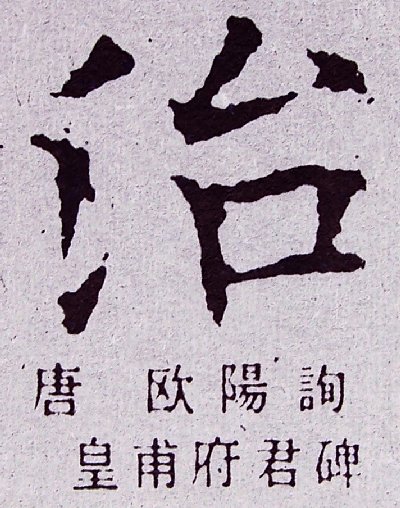 治
唐 欧陽詢
皇甫府君碑